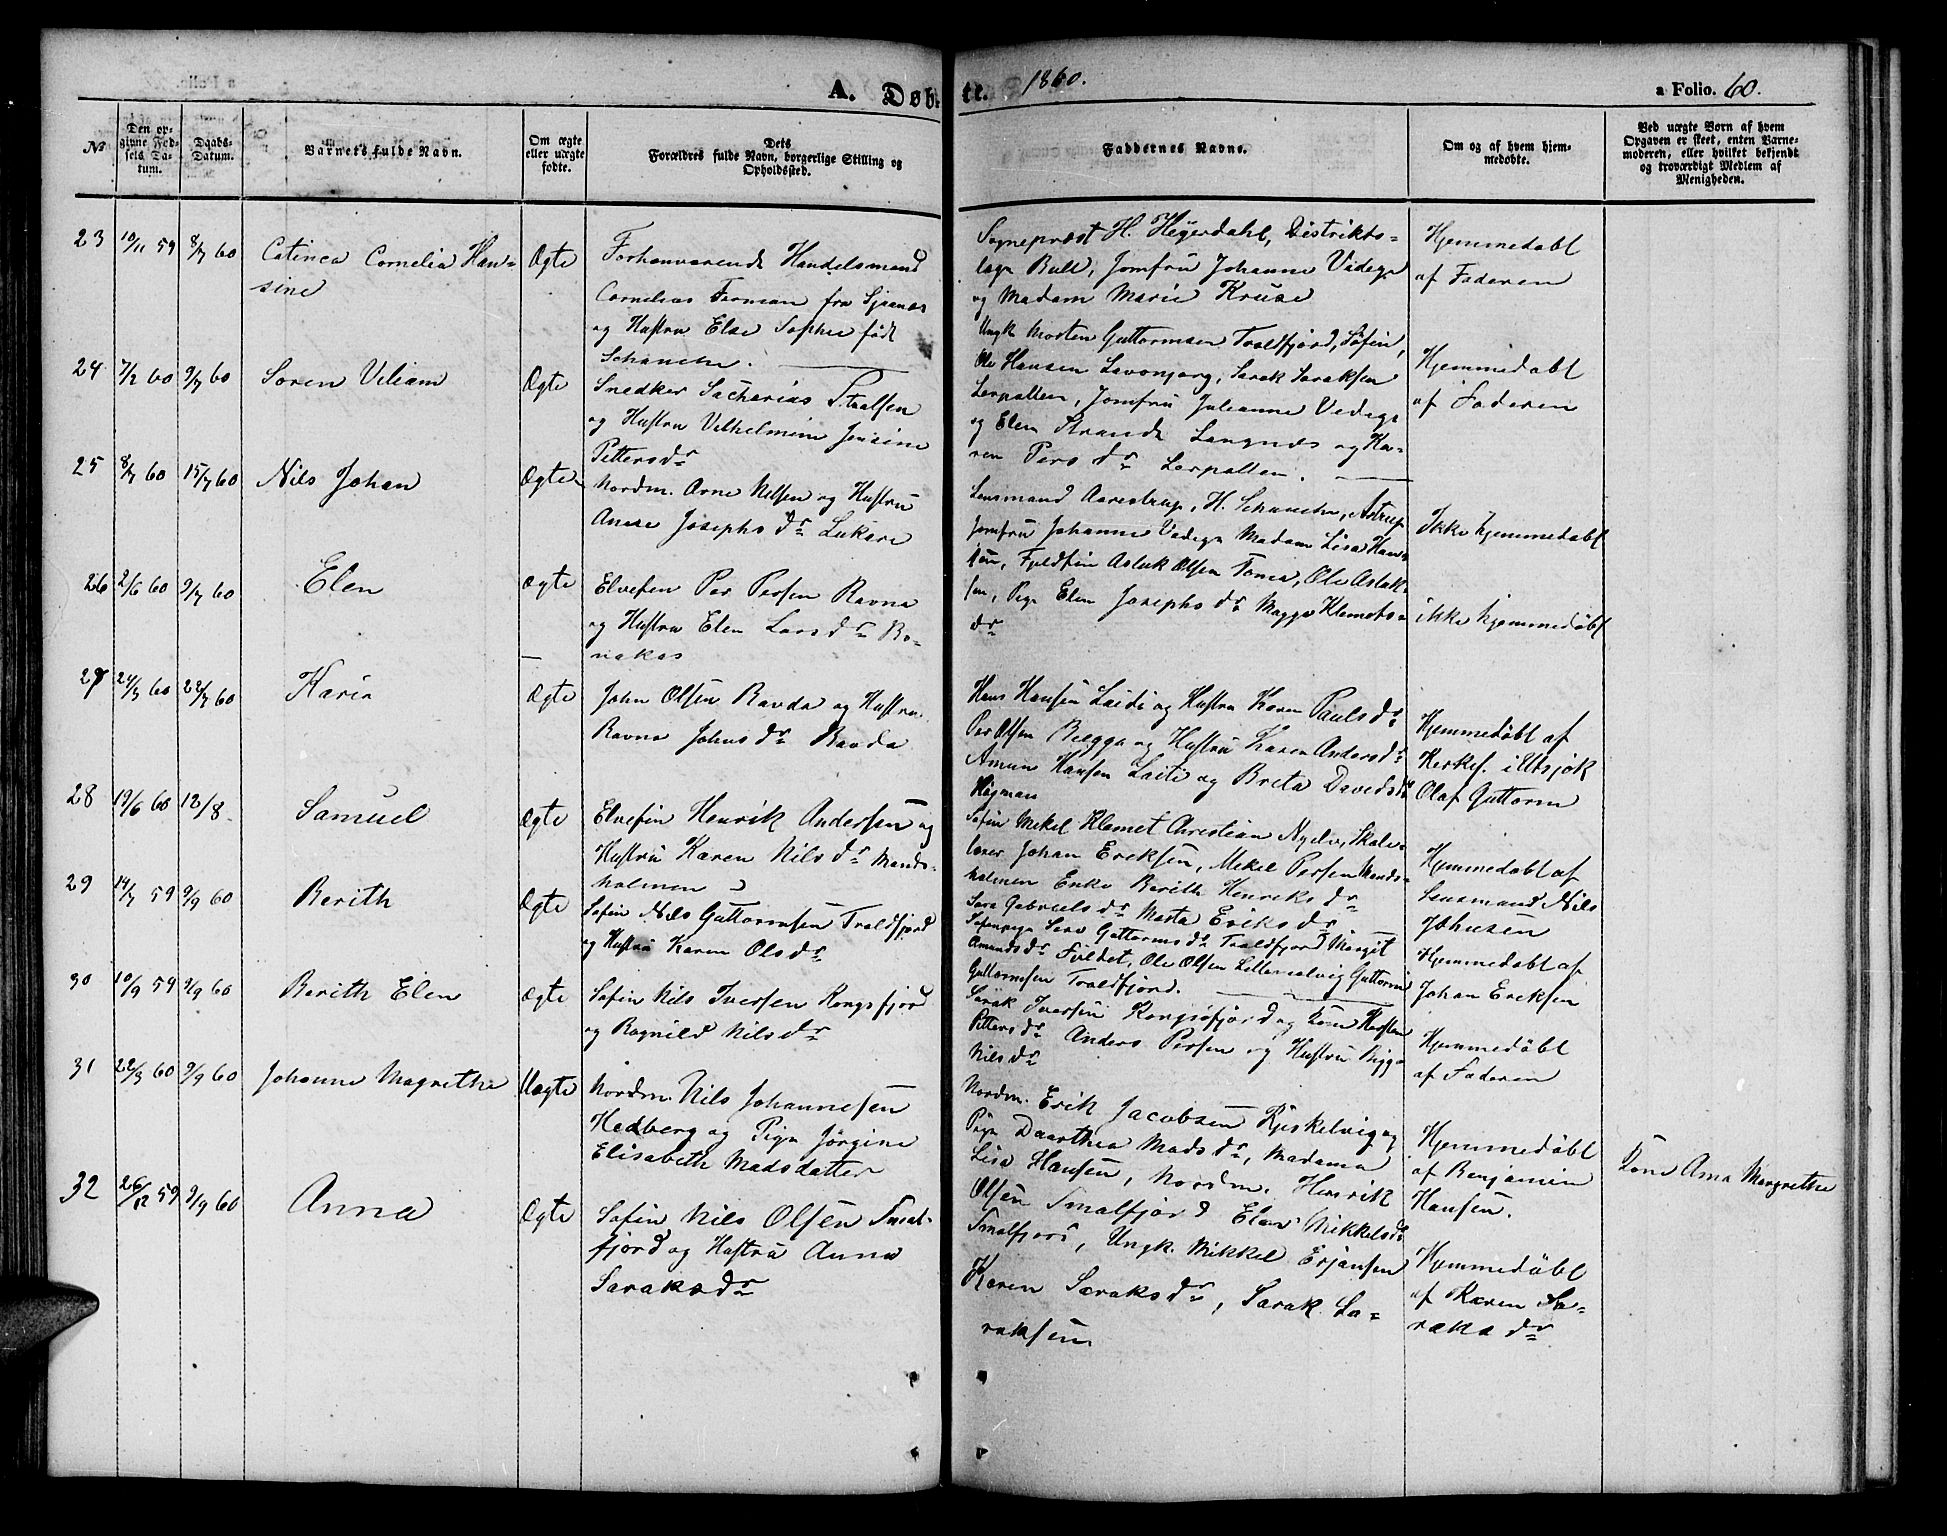 A. Døb-
te.
1860.
a Folio. 60.
No
Den op-
givne Fød-
sels Da-
tum.
Daabs-
Datum.
Barnets fulde Navn.
Om ægte
eller uægte
fødte.
Dets
Forældres fulde Navn, borgerlige Stilling og
Opholdssted.
Faddernes Navne.
Om og af hvem hjem-
medøbte.
Ved uægte Børn af hvem
Opgaven er skeet, enten Barne-
moderen, eller hvilket bekjendt
og troværdigt Medlem af
Menigheden.
23 10/11 59 8/7 60 Catinca Cornelia Han-
sine
Ægte
Forhenværende Handelsmand
Cornelius
og Hustru Else Sophie født
Schanche.
Sognepræst H. Heyerdahl, Distrikts-
læge Bull, Jomfru Johanne Vadege
og Madam Marie Kruse
Hjemmedøbt
af Faderen
24 7/2 60 9/7 60 Søren Viliam
Ægte
Snedker Sacharias
og Hustru Vilhelmine Jensine
Pettersdr
Ungk Morten Guttormsen Troldfjord, Søfin,
Ole Hansen Lavonjarg, Sarak Saraksen
Lerpollen, Jomfru Julianne Vadege
og Elen Strande Langnes og Ka-
ren Persdr Lerpollen.
Hjemmedøbt
af Faderen
25 8/7 60 15/7 60 Nils Johan
Ægte
Nordm. Arne Nilsen og Hustru
Josephsdr
Lensmand Aarestrup, H. Schanche, Astrup
Jomfru Johanne Vadege Madam Lisa Han-
sen, Fjeldfin Aslak Olsen Ole Aslak-
sen, Pige Elen Josephsdr Magga Klemets-
dr
Ikke hjemmedøbt
26 2/6 60 9/7 60 Elen
Ægte
Elvefin Per Persen Ravna
og Hustru Elen Larsdr Bo-
nakas
ikke hjemmedøbt
27 24/3 60 22/7 60 Karen
Ægte
John Olsen Ravda og Hustru
Ravna Johnsdr Ravda
Hans Hansen Laidi og Hustru Karen Paulsdr
Per Olsen Biegga og Hustru Karen Andersdr
Amun Hansen Laiti og Brita Davidsdr
Högman
Hjemmedøbt af
Kirkes. i Utsjok
Olaf Guttorm
28 19/6 60 12/8 Samuel
Ægte
Elvefin Henrik Andersen og
Hustru Karen Nilsdr Mands-
holmen
Søfin Mikel Klemet Christian Nyelv, Skole-
lærer Johan Eriksen, Mikel Persen Mands-
holmen Enke Berith Henriksdr
Sara Gabrielsdr Marta Eriksdr
Hjemmedøbt af
Lensmand Nils
Johnsen
29 14/7 59 9/9 60 Berith
Ægte
Søfin Nils Guttormsen Troldfjord
og Hustru Karen Olsdr
Søfinpige Sara Guttormsdr Troldfjord Margit
Amundsdr Ole Olsen Guttorm
Guttormsen Troldfjord.
Hjemmedøbt af
Johan Eriksen
30 10/9 59 9/9 60 Berith Elen
Ægte
Søfin Nils Iversen Kongsfjord
og Ragnild Nilsdr
Sarak Iversen Kongsøfjord og
Pettersdr Anders Persen og Hustru Bigga
Nilsdr
Hjemmedøbt
af Faderen
31 22/3 60 9/9 60 Johanne Magrethe
Uægte
Nordm. Nils Johannesen
Hedberg og Pige Jørgine
Elisabeth Madsdatter
Nordm. Erik Jacobsen
Pige Daarthea Madsdr, Madame
Lisa Hansen, Nordm. Henrik
Hjemmedøbt
af Benjamin
Hansen.
Margrethe
32 26/12 59 9/9 60 Anna
Ægte
Søfin Nils Olsen Smal-
fjord og Hustru Anna
Saraksdr
Olsen Smalfjord Elen Mikkelsdr
Smalfjord, Ungk. Mikkel
Karen Saraksdr, Sarak Sa-
raksen.
Hjemmedøbt
af Karen Sa-
raksdr